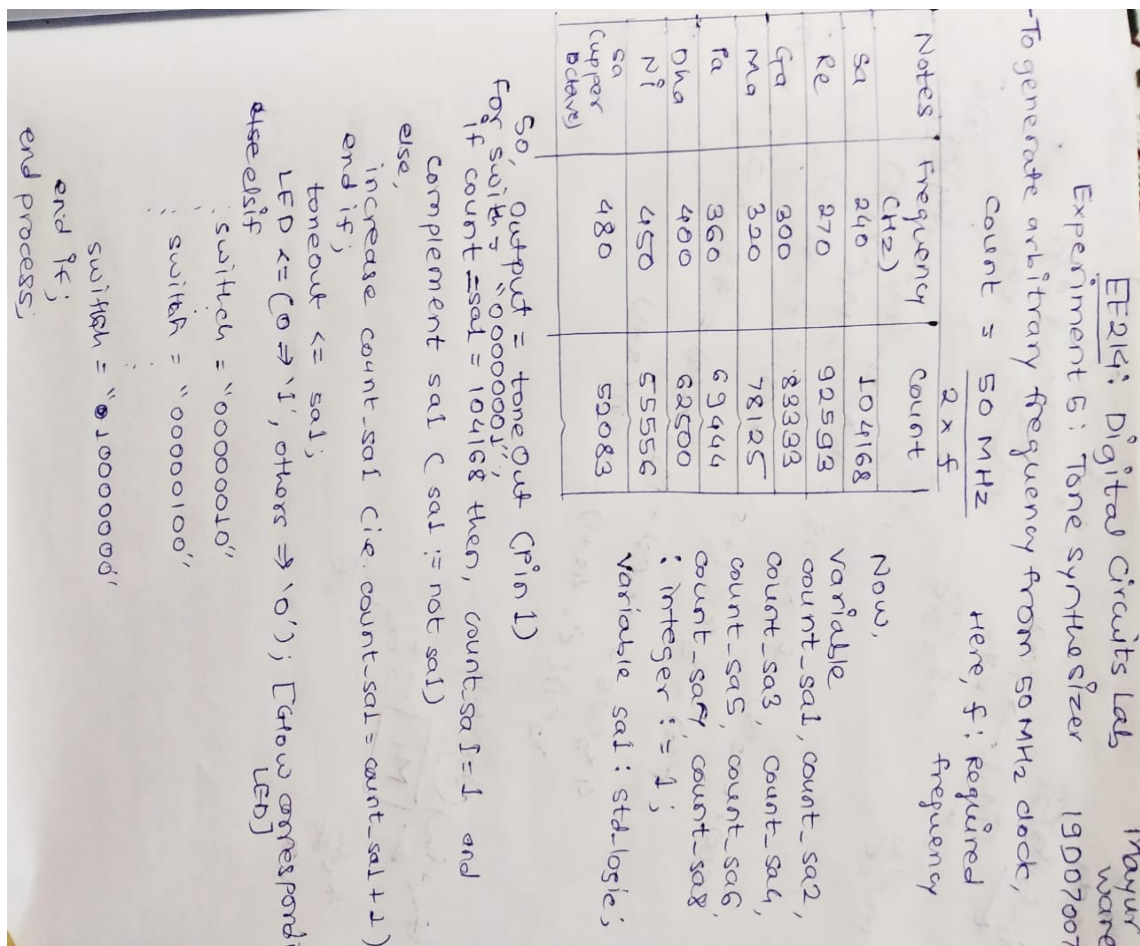 Mayur
Ware
EE214: Digital Circuits Lab
Experiment 5: Tone Synthesizer 19D07007
-To generate arbitrary frequency from 50MHz clock,
Count = 50 MHz
2 x f
Here, f: Required
frequency
Notes Frequency Count
(Hz)
Sa 240 104168
Re 270 92593
Ga 300 83333
Ma 320 78125
Pa 360 69444
Dha 400 62500
Ni 450 55556
Sa 480 52083
(upper
octave)
Now,
variable
count_sa1, count_sa2,
count_sa3, count_sa4,
count_sa5, count_sa6
count_sa7, count_sa8
: integer := 1;
variable sa1 : std_logic;
So, Output = toneOut (Pin 1)
For swith = "00000001",
if count =sa1 = 104168 then, count_sa1=1 and
complement sa1 ( sa1 := not sa1)
else,
increase count_sa1 (ie. count_sa1 = count_sa1 + 1)
end if;
toneout <= sa1;
LED <= (0 => '1', others => '0'); [Glow correspondi
LED]
elsif
switch = "00000010"
switch = "00000100"
switch = "10000000"
end if;
end process;